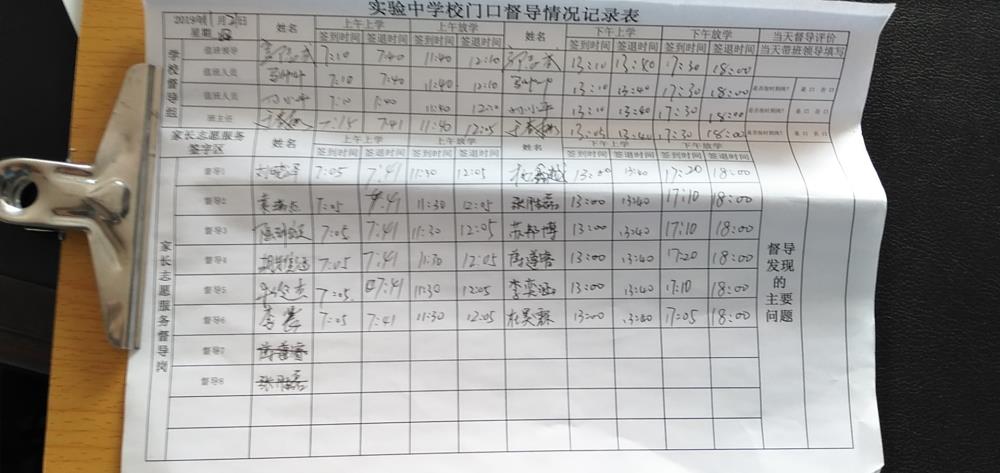 实验中学校门口督导情况记录表
2019年11月21日
星期四
姓名 上午上学 上午放学 姓名 下午上学 下午放学 当天督导评价
签到时间 签退时间 签到时间 签退时间 签到时间 签退时间 签到时间 签退时间 当天带班领导填写
学校督导组
值班领导 7:10 7:40 11:40 12:10 13:10 13:40 17:30 18:00
值班人员 7:10 7:40 11:40 12:10 13:10 13:40 17:30 18:00 是否按时到岗? 是口 否口
值班人员 7:10 7:40 11:40 刘小平 13:10 13:40 17:30 18:00 是否按时到岗? 是口 否口
班主任 7:15 7:41 11:40 12:05 13:05 13:40 17:30 18:00 是否按时到岗? 是口 否口
家长志愿服务签字区 姓名 上午上学 上午放学 姓名 下午上学 下午放学
签到时间 签退时间 签到时间 签退时间 签到时间 签退时间 签到时间 签退时间
家长志愿服务督导岗
督导1 7:05 7:41 11:30 12:05 13:00 13:40 17:20 18:00
督导2 7:05 7:41 11:30 12:05 13:00 13:40 17:10 18:00
督导3 7:05 7:41 11:30 12:05 苏邦博 13:00 13:40 17:10 18:00
督导4 7:05 7:41 11:30 12:05 13:00 13:40 17:20 18:00
督导5 7:05 7:41 11:30 12:05 李奕涵 13:00 13:40 17:10 18:00
督导6 7:05 7:41 11:30 12:05 杜昊霖 13:00 13:40 17:05 18:00
督导7
督导8
督导发现的主要问题